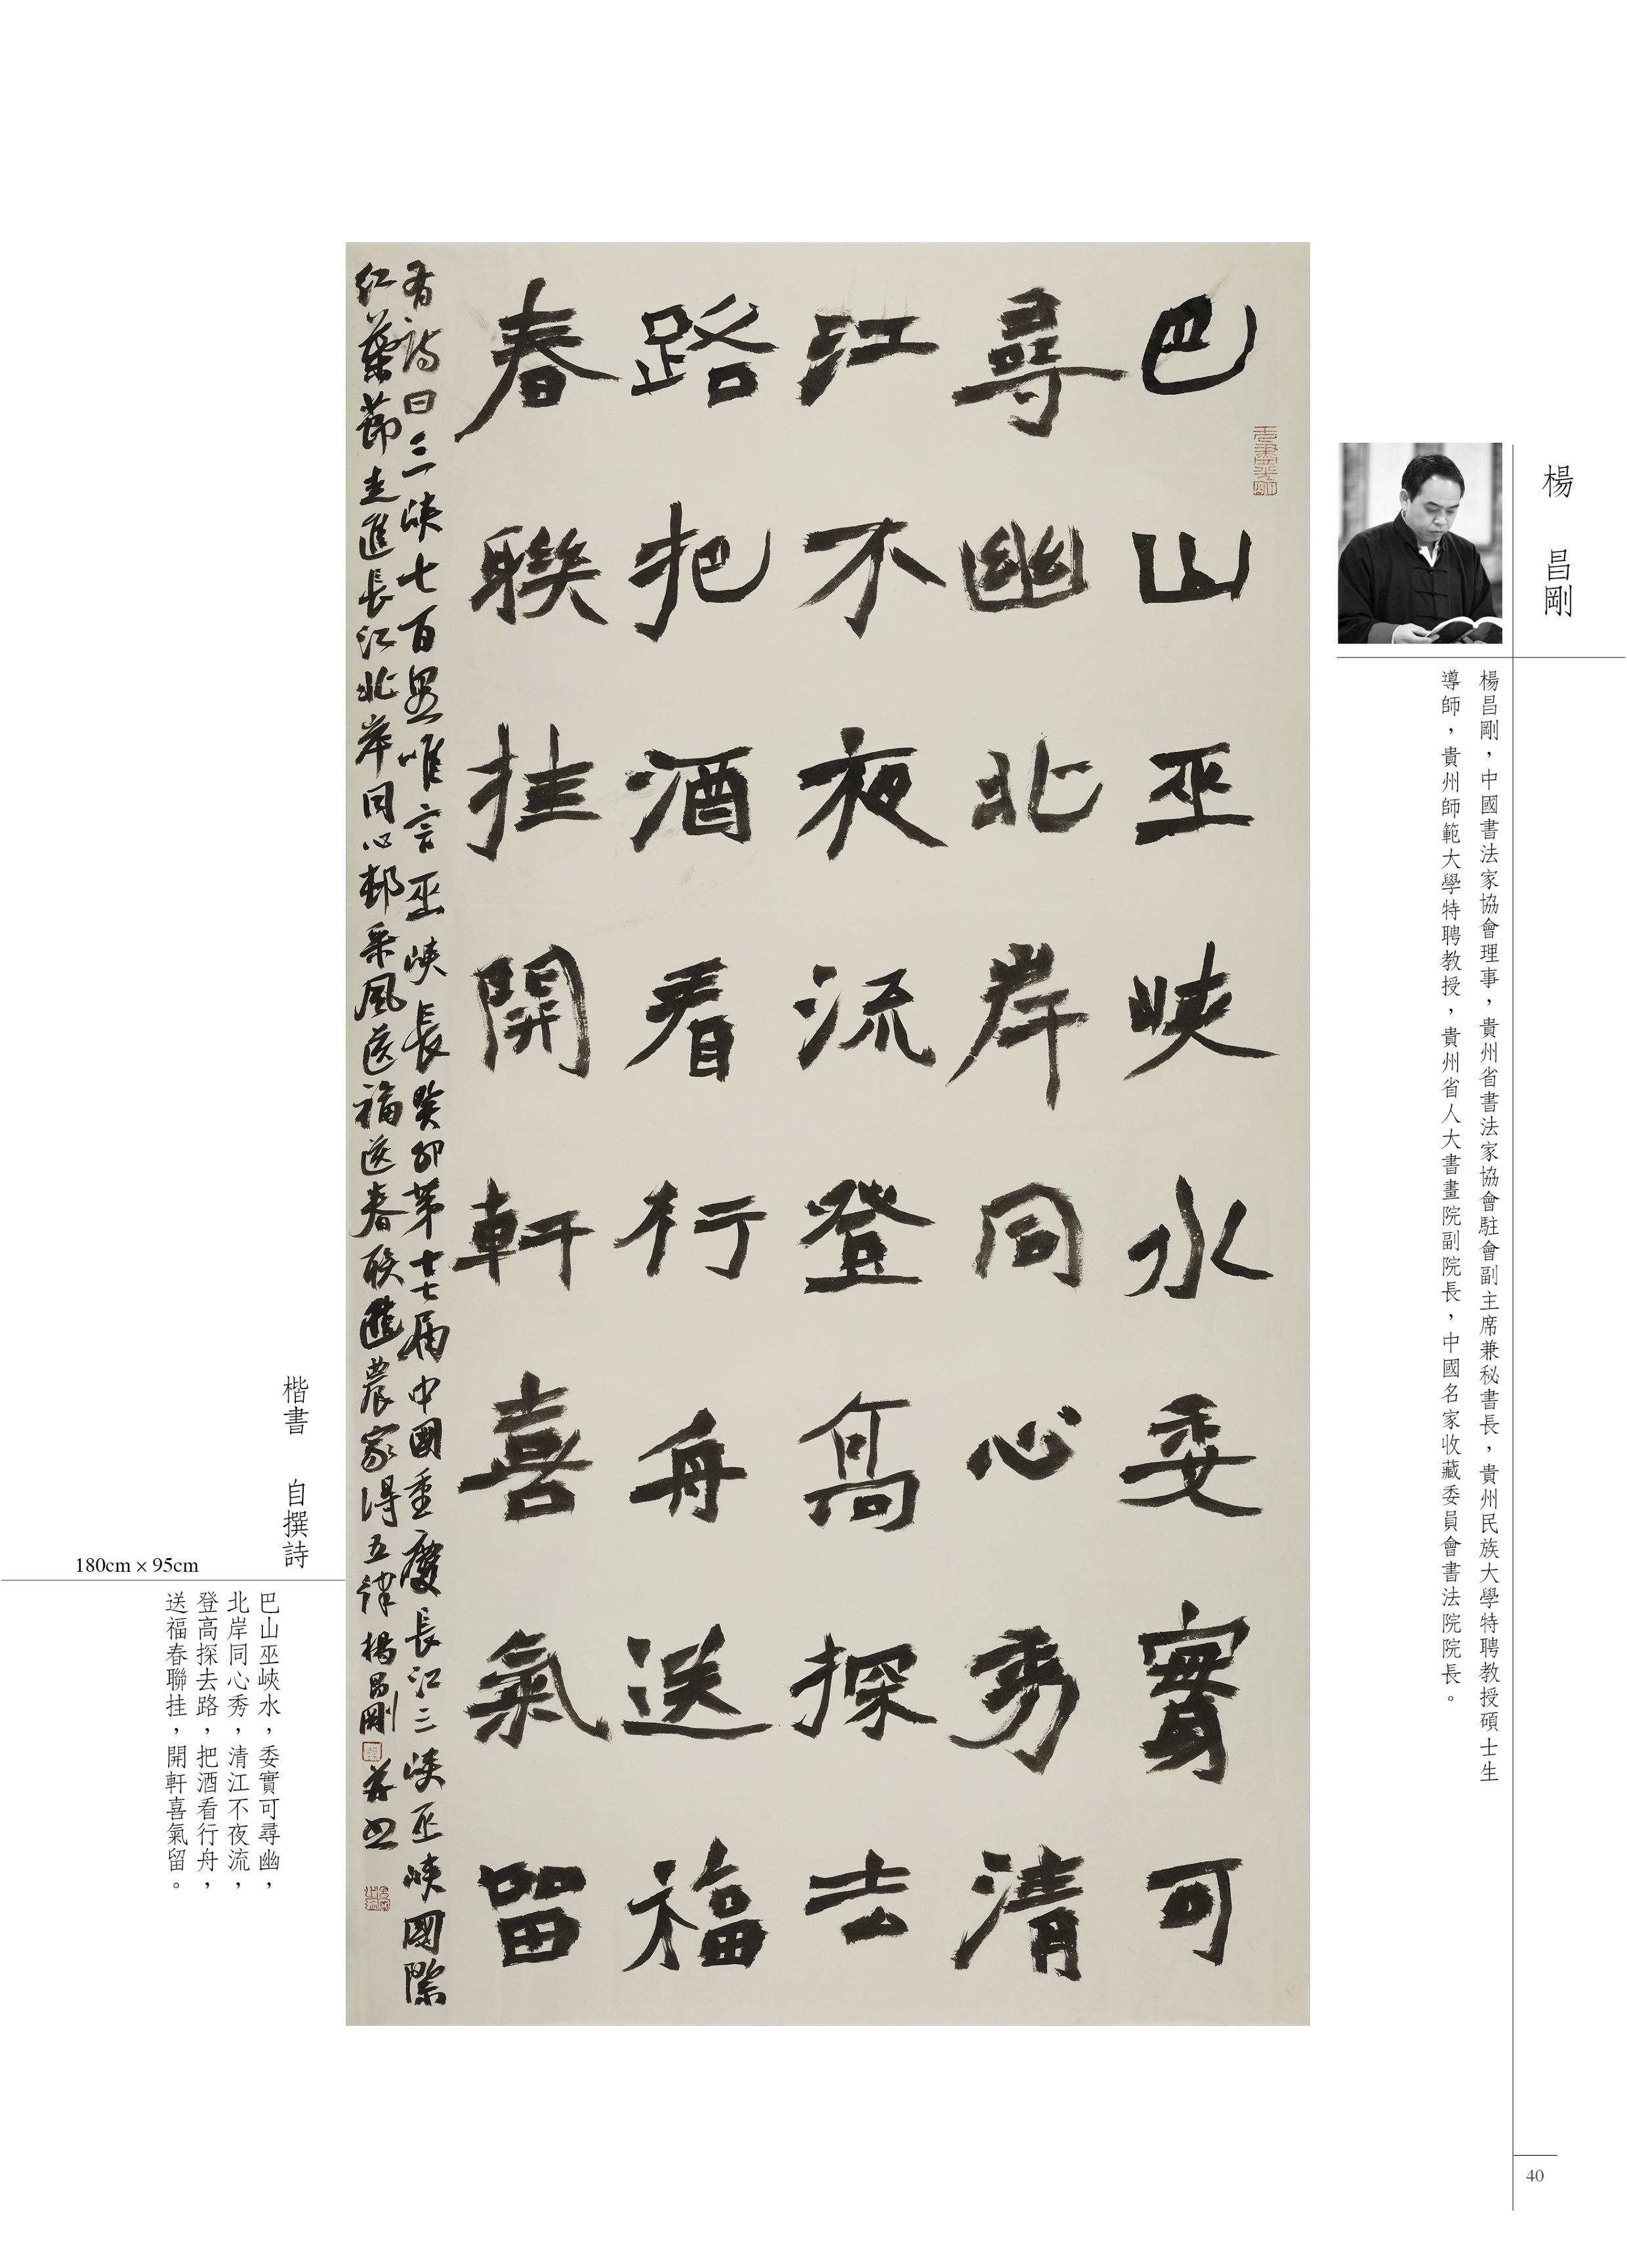 楊 昌剛
楊昌剛，中國書法家協會理事，貴州省書法家協會駐會副主席兼秘書長，貴州民族大學特聘教授碩士生
導師，貴州師範大學特聘教授，貴州省人大書畫院副院長，中國名家收藏委員會書法院院長。
巴山巫峽水委實可
尋幽北岸同心秀清
江不夜流登高探去
路把酒看行舟送福
春聯挂開軒喜氣留
有詩曰三峽七百里唯言巫峽長癸卯第十七屆中國重慶長江三峽巫峽國際
紅葉節走進長江北岸同心邨采風送福送春联進農家得五律楊昌剛并書
楷書 自撰詩
180cm × 95cm
巴山巫峽水，委實可尋幽，
北岸同心秀，清江不夜流，
登高探去路，把酒看行舟，
送福春聯挂，開軒喜氣留。
40